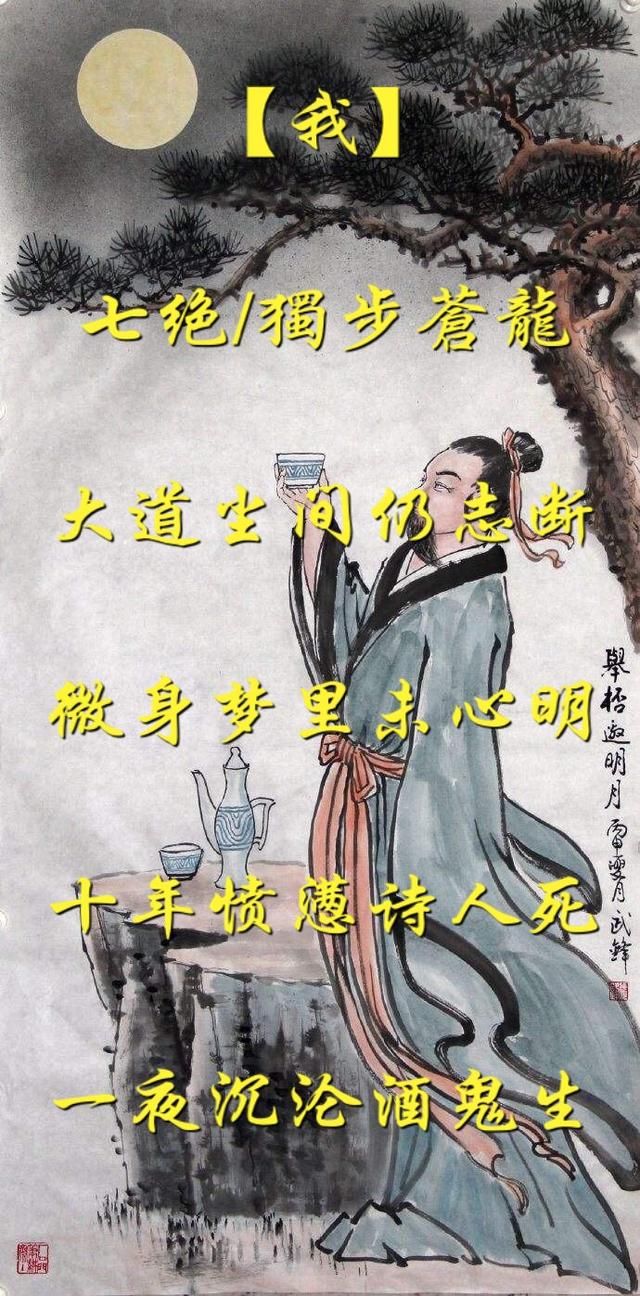 【我】
七绝/獨步蒼龍
大道尘间仍志断
微身梦里未心明
十年愤懑诗人死
一夜沉沦酒鬼生
舉杯邀明月
丙申夏月武鋒